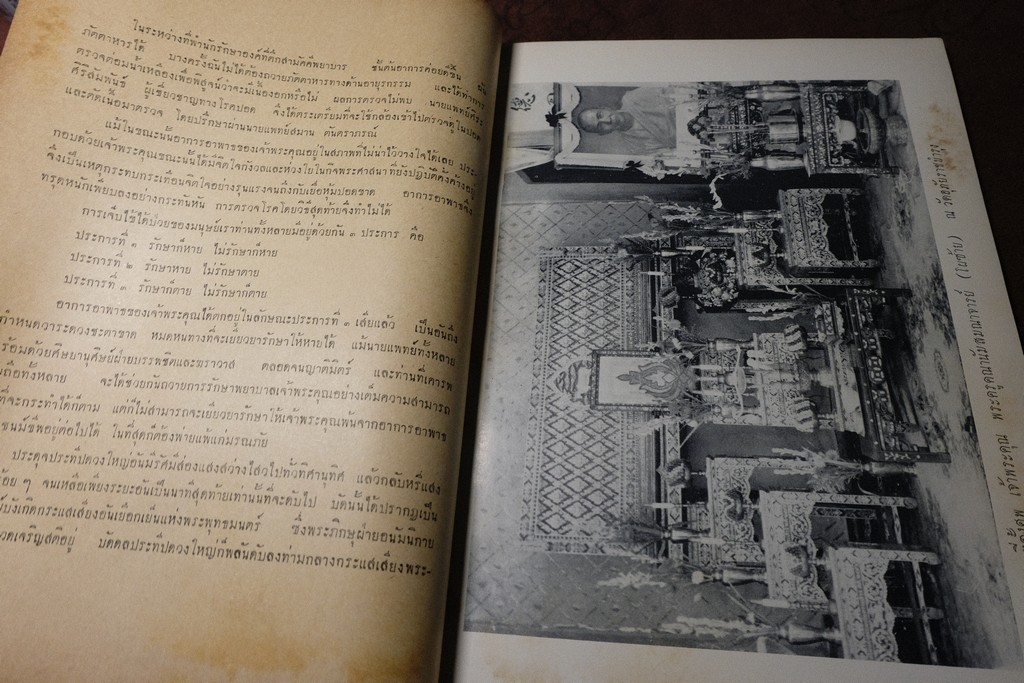 ในระหว่างที่พำนักรักษาองค์ที่ตึกสามัคคีพยาบาร ชั้นต้นอาการค่อยดีขึ้น ฉัน
ภัตตาหารได้ บางครั้งฉันไม่ได้ต้องถวายภัตตาหารทางด้านอายุรกรรม และได้ทำการ
ตรวจต่อมน้ำเหลืองเพื่อพิสูจน์ว่าจะมีเนื้องอกหรือไม่ ผลการตรวจไม่พบ นายแพทย์
ศิริสัมพันธ์ ผู้เชี่ยวชาญทางโรคปอด จึงได้ตระเตรียมที่จะใช้กล้องเข้าไปตรวจดูในปอด
และตัดเนื้อมาตรวจ โดยปรึกษาผ่านนายแพทย์สมาน ตันตราภรณ์
แม้ในขณะนั้นอาการอาพาธของเจ้าพระคุณอยู่ในสภาพที่ไม่น่าไว้วางใจได้เลย ประ
กอบด้วยเจ้าพระคุณขณะนั้นได้มีจิตใจกังวลและห่วงใยในกิจพระศาสนาที่ยังปฏิบัติค้างค้างอยู่
จึงเป็นเหตุกระทบกระเทือนจิตใจอย่างรุนแรงจนถึงกับเยื่อหุ้มปอดขาด อาการอาพาธจึง
ทรุดหนักเพียบลงอย่างกระทันหัน การตรวจโรคโดยวิธีสุดท้ายจึงทำไม่ได้
การเจ็บไข้ได้ป่วยของมนุษย์เราท่านทั้งหลายมีอยู่ด้วยกัน ๓ ประการ คือ
ประการที่ ๑ รักษาก็หาย ไม่รักษาก็หาย
ประการที่ ๒ รักษาหาย ไม่รักษาตาย
ประการที่ ๓ รักษาก็ตาย ไม่รักษาก็ตาย
อาการอาพาธของเจ้าพระคุณได้ตกอยู่ในลักษณะประการที่ ๓ เสียแล้ว เป็นอันถึง
กำหนดวาระดวงชะตาขาด หมดหนทางที่จะเยียวยารักษาให้หายได้ แม้นายแพทย์ทั้งหลาย
พร้อมด้วยศิษยานุศิษย์ฝ่ายบรรพชิตและฆราวาส ตลอดจนญาติมิตร์ และท่านที่เคารพ
นับถือทั้งหลาย จะได้ช่วยกันถวายการรักษาพยาบาลเจ้าพระคุณอย่างเต็มความสามารถ
ที่จะกระทำได้ก็ตาม แต่ก็ไม่สามารถจะเยียวยารักษาให้เจ้าพระคุณพ้นจากอาการอาพาธ
จนมีชีพอยู่ต่อไปได้ ในที่สุดก็ต้องพ่ายแพ้แก่มรณภัย
ประดุจประทีปดวงใหญ่อันมีรัศมีส่องแสงสว่างไสวไปทั่วทิศานุทิศ แล้วกลับหรี่แสง
น้อย ๆ จนเหลือเพียงระยะอันเป็นนาทีสุดท้ายเท่านั้นที่จะดับไป บัดนั้นได้ปรากฏเป็น
บังเกิดกระแสเสียงอันเยือกเย็นแห่งพระพุทธมนตร์ ซึ่งพระภิกษุฝ่ายอนัมนิกาย
สวดเจริญสติอยู่ บัดดลประทีปดวงใหญ่ก็พลันดับลงท่ามกลางกระแสเสียงพระ-
เจ้าพระคุณ พระครูคณานัมสมณาจารย์ (โผซ้าย) ณ วัดอุภัยราชบำรุง